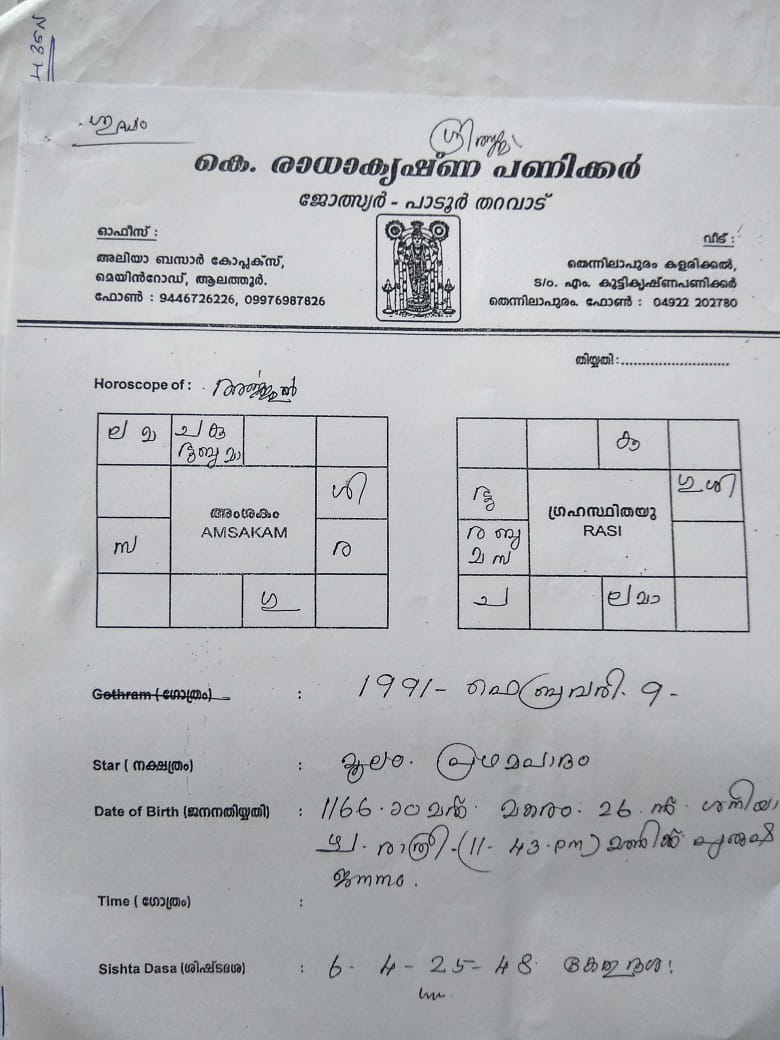 N58 H
ശുഭം
ശ്രീ
കെ. രാധാകൃഷ്ണ പണിക്കർ
ജോത്സ്യർ - പാടൂർ തറവാട്
ഓഫീസ് :
അലിയാ ബസാർ കോപ്ലക്സ്,
മെയിൻറോഡ്, ആലത്തൂർ.
ഫോൺ : 9446726226, 09976987826
വീട് :
തെന്നിലാപുരം കളരിക്കൽ,
S/o. എം. കുട്ടികൃഷ്ണപണിക്കർ
തെന്നിലാപുരം. ഫോൺ : 04922 202780
തിയ്യതി :..........................
Horoscope of :
ല മ
ച കു
ശി
അംശകം
AMSAKAM
സ
ര
ഗു
കു
ഗു ശി
ഗ്രഹസ്ഥിതയു
RASI
ര ബു
മ സ
ച
ല മാ
Gothram (ഗോത്രം) : 1991- ഫെബ്രുവരി. 9 -
Star ( നക്ഷത്രം) : മൂലം. പ്രഥമപാദം
Date of Birth (ജനനതിയ്യതി) : 1166 . മകരം. 26 ന്. ശനിയാ
ഴ്ച. രാത്രി. (11 - 43 . pm) മണിക്ക്
ജനനം.
Time ( ഗോത്രം) :
Sishta Dasa (ശിഷ്ടദശ) : 6 - 4 - 25 - 48 കേതുദശ.